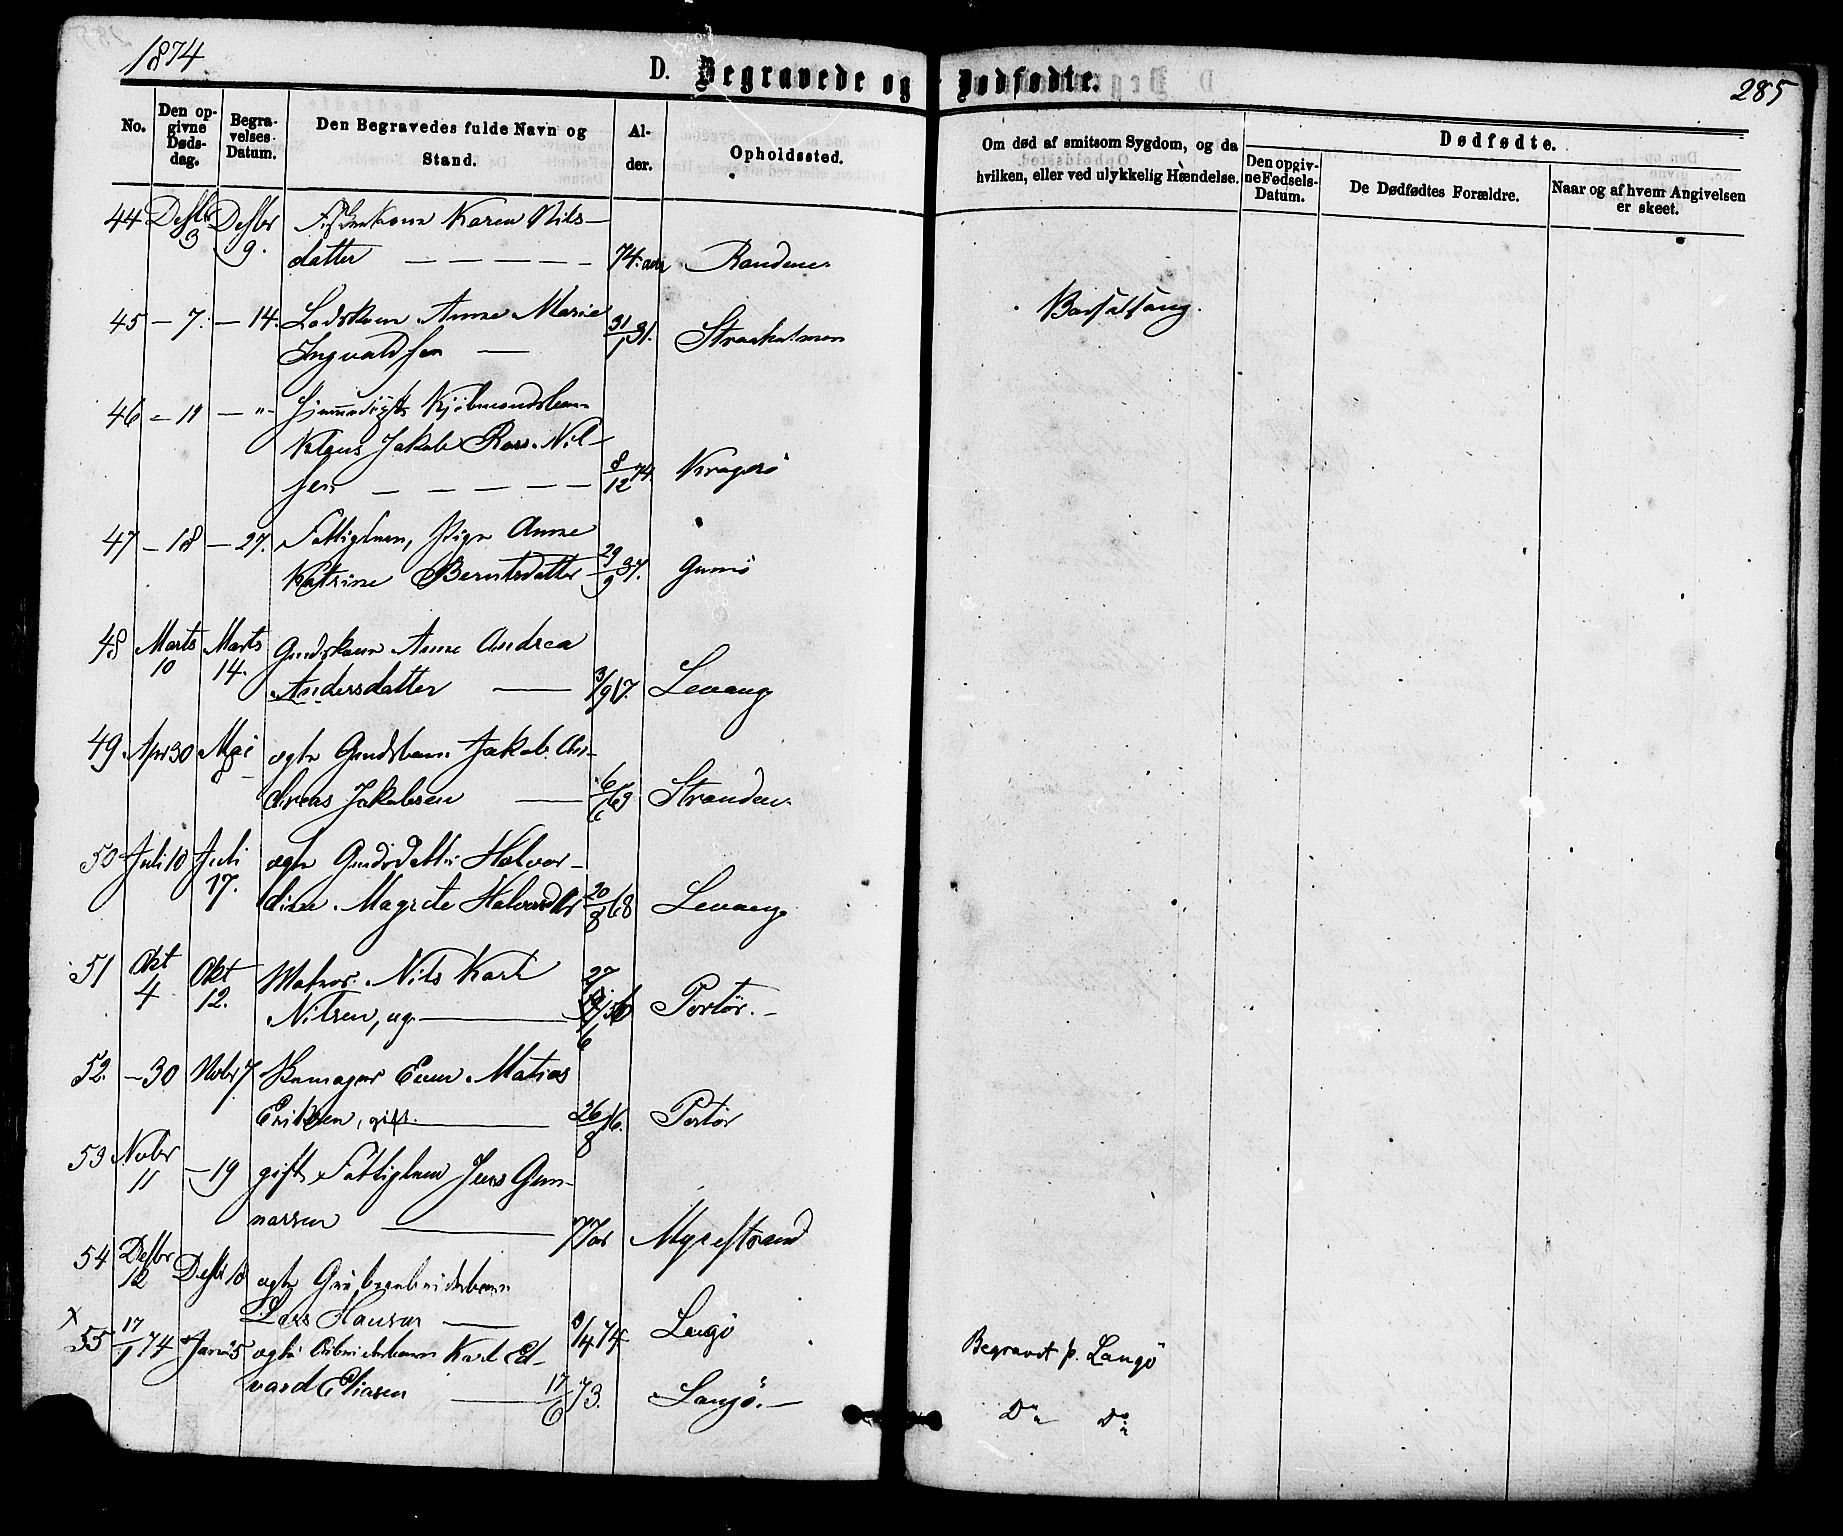 1874
D. Begravede og Dødfødte.
285
No.
Den opgivne Dødsdag.
Begravelses-Datum.
Den Begravedes fulde Navn og Stand.
Alder.
Opholdssted.
Om død af smitsom Sygdom, og da hvilken, eller ved ulykkelig Hændelse.
Dødfødte.
Den opgivne Fødsels-Datum.
De Dødfødtes Forældre.
Naar og af hvem Angivelsen er skeet.
44 Desbr 3 Desbr 9. Karen Nils-
datter — — — — — 74 aar Randene
45 – 7. – 14. Anne Marie
Ingvaldsen — 31/1 31. Straaholmen Barselseng.
46 – 11 – " –
Klaus Jakob Nil-
sen — — — — — 8/12 74. Kragerø
47 – 18 – 27. Fattiglem, Pige Anne
Katrine Berntsdatter 29/9 37. Gumø
48 Marts 10 Marts 14. Anne Andrea
Andersdatter — 3/9 17. Levang
49 Apr 30 Mai 8 ægte Jakob An-
dreas Jakobsen — 6/6 69 Stranden
50 Juli 10 Juli 17. ægte Halvor-
dine Magrete 20/8 68 Levang
51 Okt 4 Okt 12. Matros Nils Karl
Nilsen, ug. — Portør. –
52. – 30 Nobr 7 Even Matias
Eriksen, gift. — 26/8 16. Portør
53 Nobr 11 – 19 gift Fattiglem Jens Gun-
narsen — 77 ar Myrestrand
54 Desbr 12 Desbr 18 ægte
Lars Hansen — 74. Langø Begravet p. Langø
x 55 17/1 74 Janu 5 ægte Arbeidsbarn Karl Ed-
vard Eliasen — 17/6 73. Langø. – Do Do